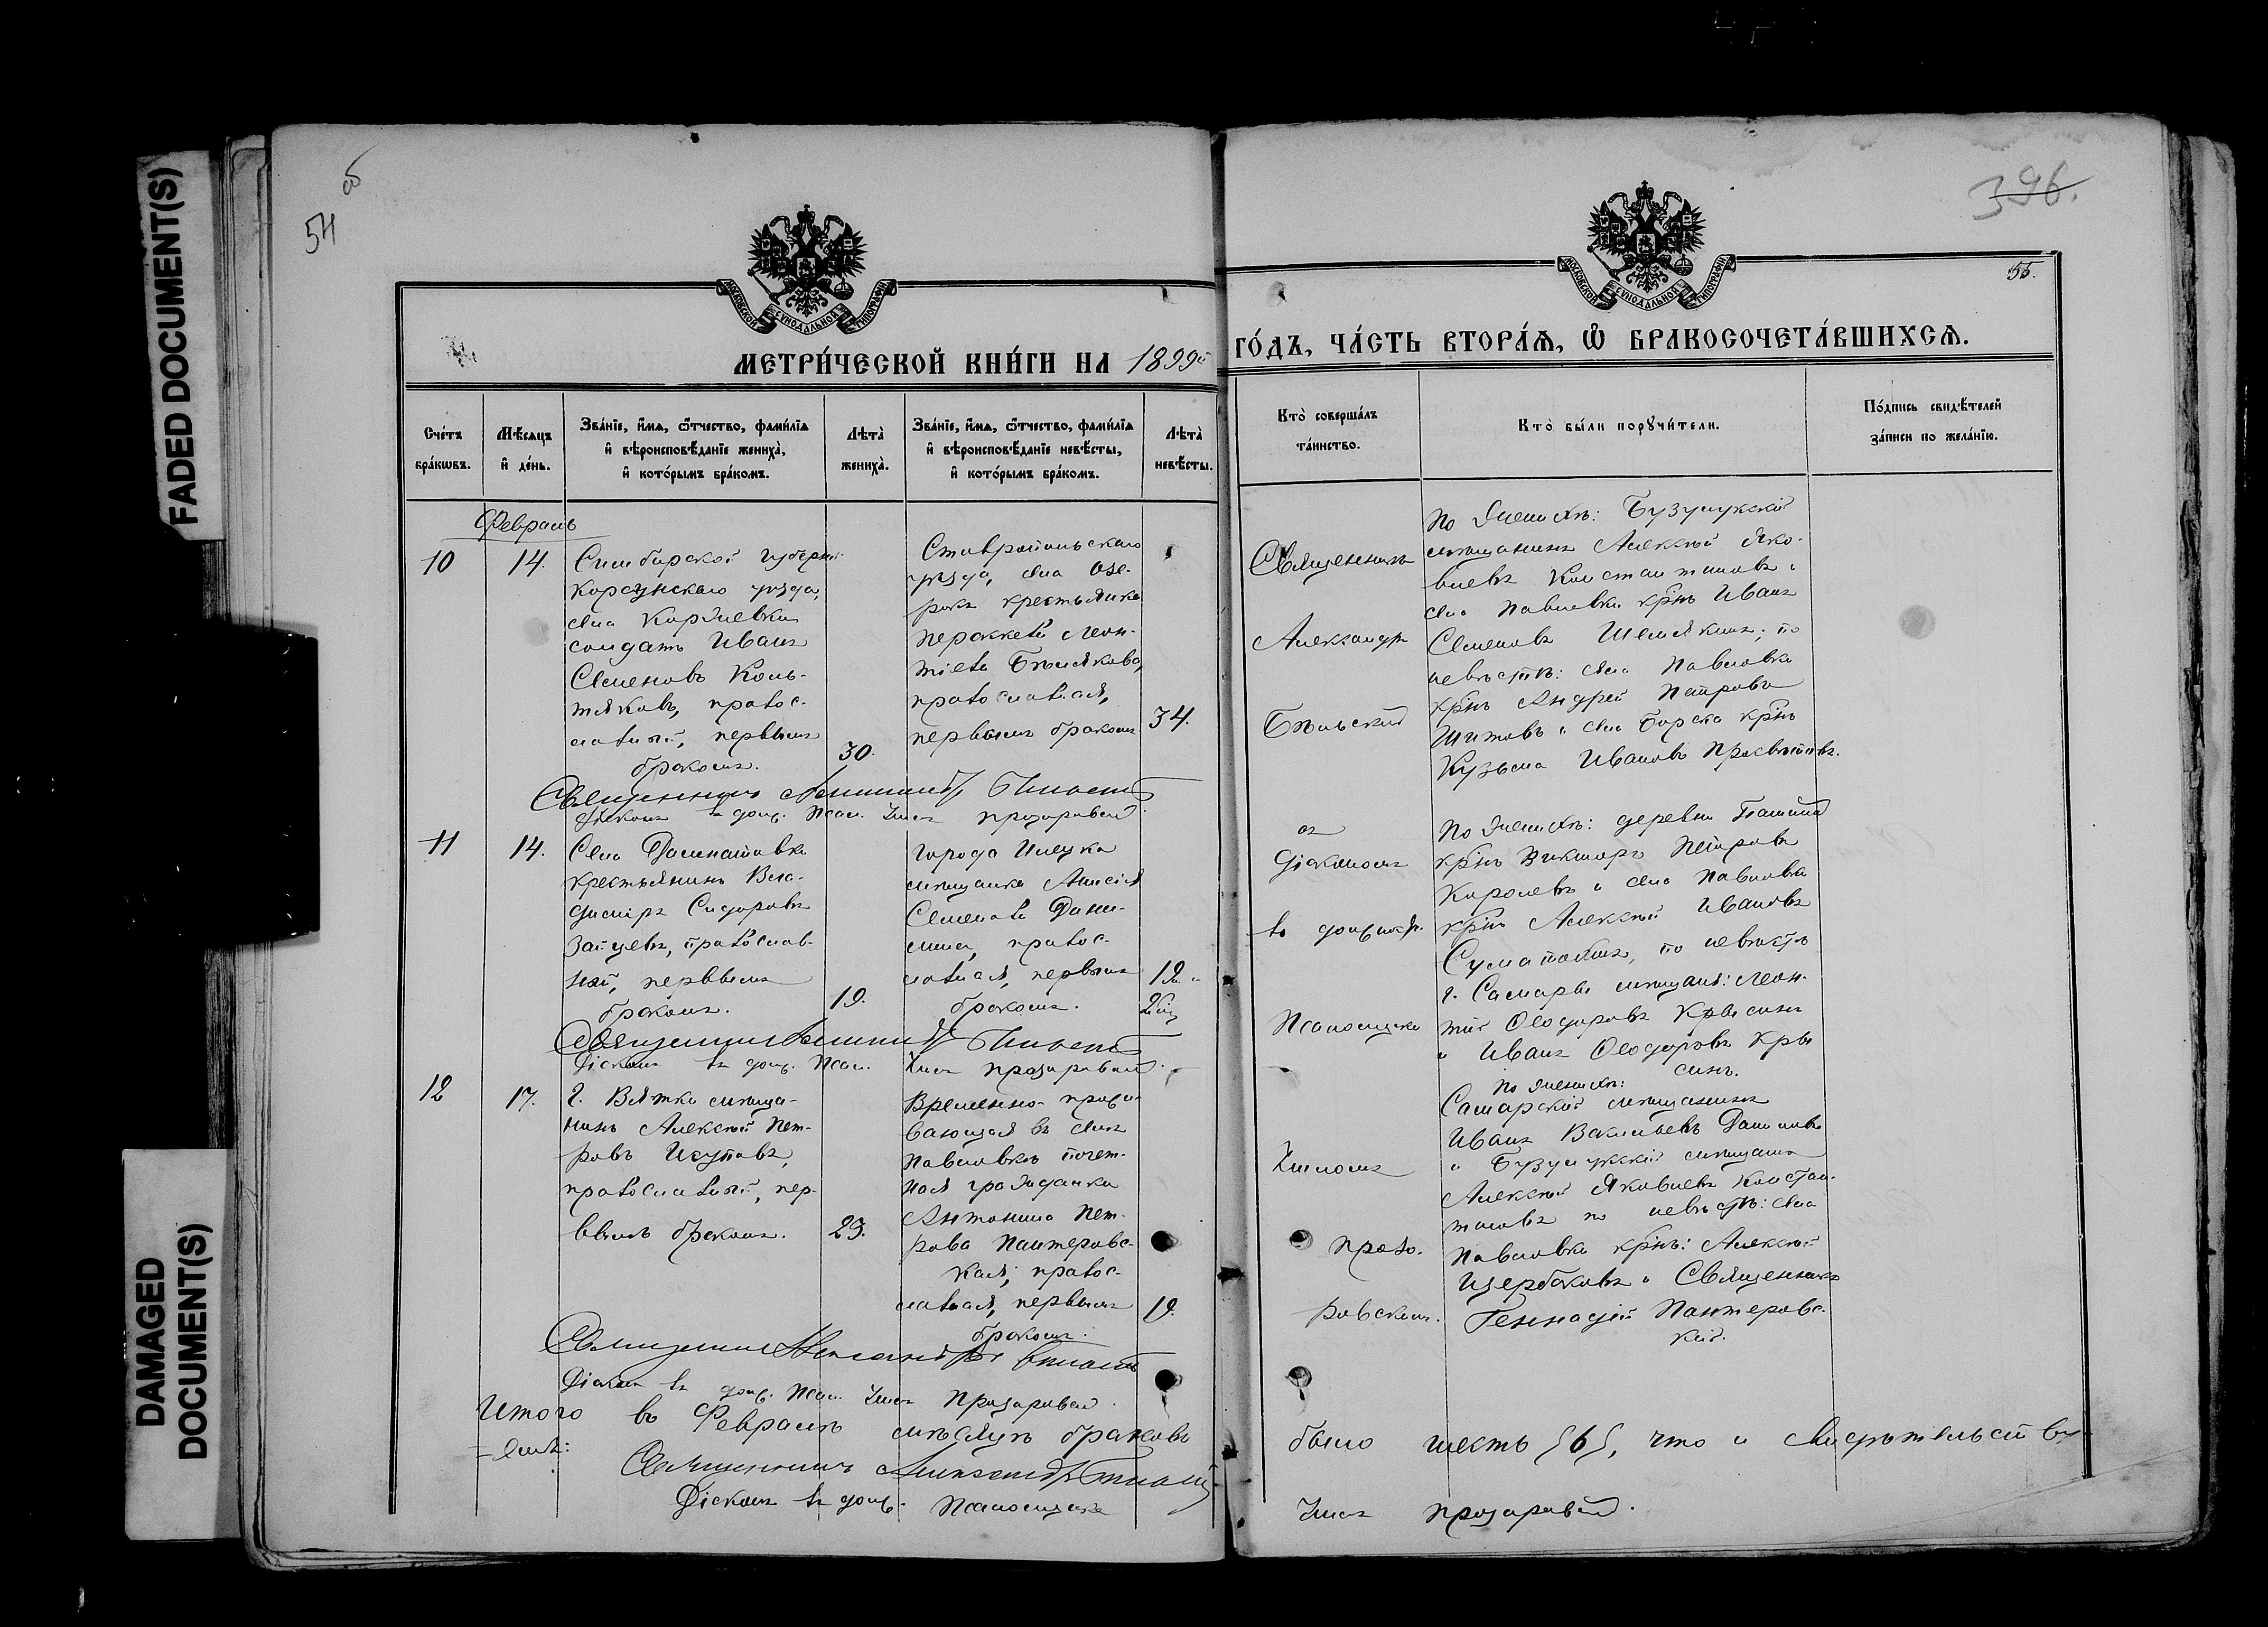 FADED DOCUMENT(S)
DAMAGED
DOCUMENT(S)
об
54
396.
55.
МОСКОВСКОЙ СѴНОДАЛЬНОЙ ТИПОГРАФІИ
МОСКОВСКОЙ СѴНОДАЛЬНОЙ ТИПОГРАФІИ
МЕТРИ́ЧЕСКОЙ КНИ́ГИ НА 1899й
ГО́ДЪ, ЧА́СТЬ ВТОРА́Ѧ, Ѽ БРАКОСОЧЕТА́ВШИХСѦ.
Сче́тъ
бра́кѡвъ.
Мѣ́сѧцъ
и҆ де́нь.
Зва́нїе, и҆́мѧ, ѻ҆́тчество, фами́лїѧ
и҆ вѣроисповѣ́данїе жениха̀,
и҆ кото́рымъ бра́комъ.
Лѣта̀
жениха̀.
Зва́нїе, и҆́мѧ, ѻ҆́тчество, фами́лїѧ
и҆ вѣроисповѣ́данїе невѣ́сты,
и҆ кото́рымъ бра́комъ.
Лѣта̀
невѣ́сты.
Кто̀ соверша́лъ
та́инство.
Кто̀ бы́ли порꙋчи́тели.
По́дпись свидѣ́телей
за́писи по жела́нїю.
Февраль
10
14.
Симбирской губерніи
Корсунскаго уѣзда,
села
солдатъ Иванъ
Семеновъ Коль-
тяковъ, правос-
лавный, первымъ
бракомъ.
30.
Ставропольскаго
уѣзда, села Озе-
рокъ крестьянка
Параскева Леон-
тіева Бѣлякова,
православная,
первымъ бракомъ
34.
Священникъ
Александръ
Бѣльскій
По женихѣ: Бузулукскій
мѣщанинъ Алексѣй Яко-
влевъ Константиновъ и
села Павловки крнъ Иванъ
Семеновъ Шемякинъ; по
невѣстѣ: села Павловки
крнъ Андрей Петровъ
Шитовъ и села Борска крнъ
Кузьма Ивановъ Просвѣтовъ.
Священникъ Александръ Бѣльскій
Діаконъ въ долж. Псал. Хилъ Прозоровскій
11
14.
Села
крестьянинъ Вла-
диміръ Сидоровъ
Зайцевъ, православ-
ный, первымъ
бракомъ.
19.
города Илецка
мѣщанка Анисія
Семенова Дани-
лина, правос-
лавная, первымъ
бракомъ.
съ
діакономъ
въ должнос.
Псаломщика
По женихѣ: деревни
крнъ Викторъ Петровъ
Королевъ и села Павловки
крнъ Алексѣй Ивановъ
по невѣстѣ
г. Самары мѣщане: Леон-
тій Ѳеодоровъ Кры синъ
и Иванъ Ѳеодоровъ Кры
синъ.
Священникъ Александръ Бѣльскій
Діаконъ въ долж. Псал. Хилъ Прозоровскій.
12
17.
г. Вятки мѣща-
нинъ Алексѣй Пет-
ровъ Исуповъ,
православный, пер-
вымъ бракомъ.
23.
Временно-прожи-
вающая въ селѣ
Павловкѣ почет-
ная гражданка
Антонина Пет-
рова Пантеровс-
кая, правос-
лавная, первымъ
бракомъ.
19.
Хиломъ
Прозо-
ровскимъ.
По женихѣ:
Самарскій мѣщанинъ
Иванъ Васильевъ Даниловъ
и Бузулукскій мѣщанинъ
Алексѣй Яковлевъ Констан-
тиновъ по невѣстѣ: села
Павловки крнъ: Алексѣй
Щербаковъ и Священникъ
Геннадій Пантеровс-
кій.
Священникъ Александръ Бѣльскій
Діаконъ въ долж. Псал. Хилъ Прозоровскій.
Итого въ Февралѣ мѣсяцѣ браковъ было шесть {6}, что и свидѣтельству-
-емъ:
Священникъ Александръ Бѣльскій
Діаконъ въ долж. Псаломщика Хилъ Прозоровскій.